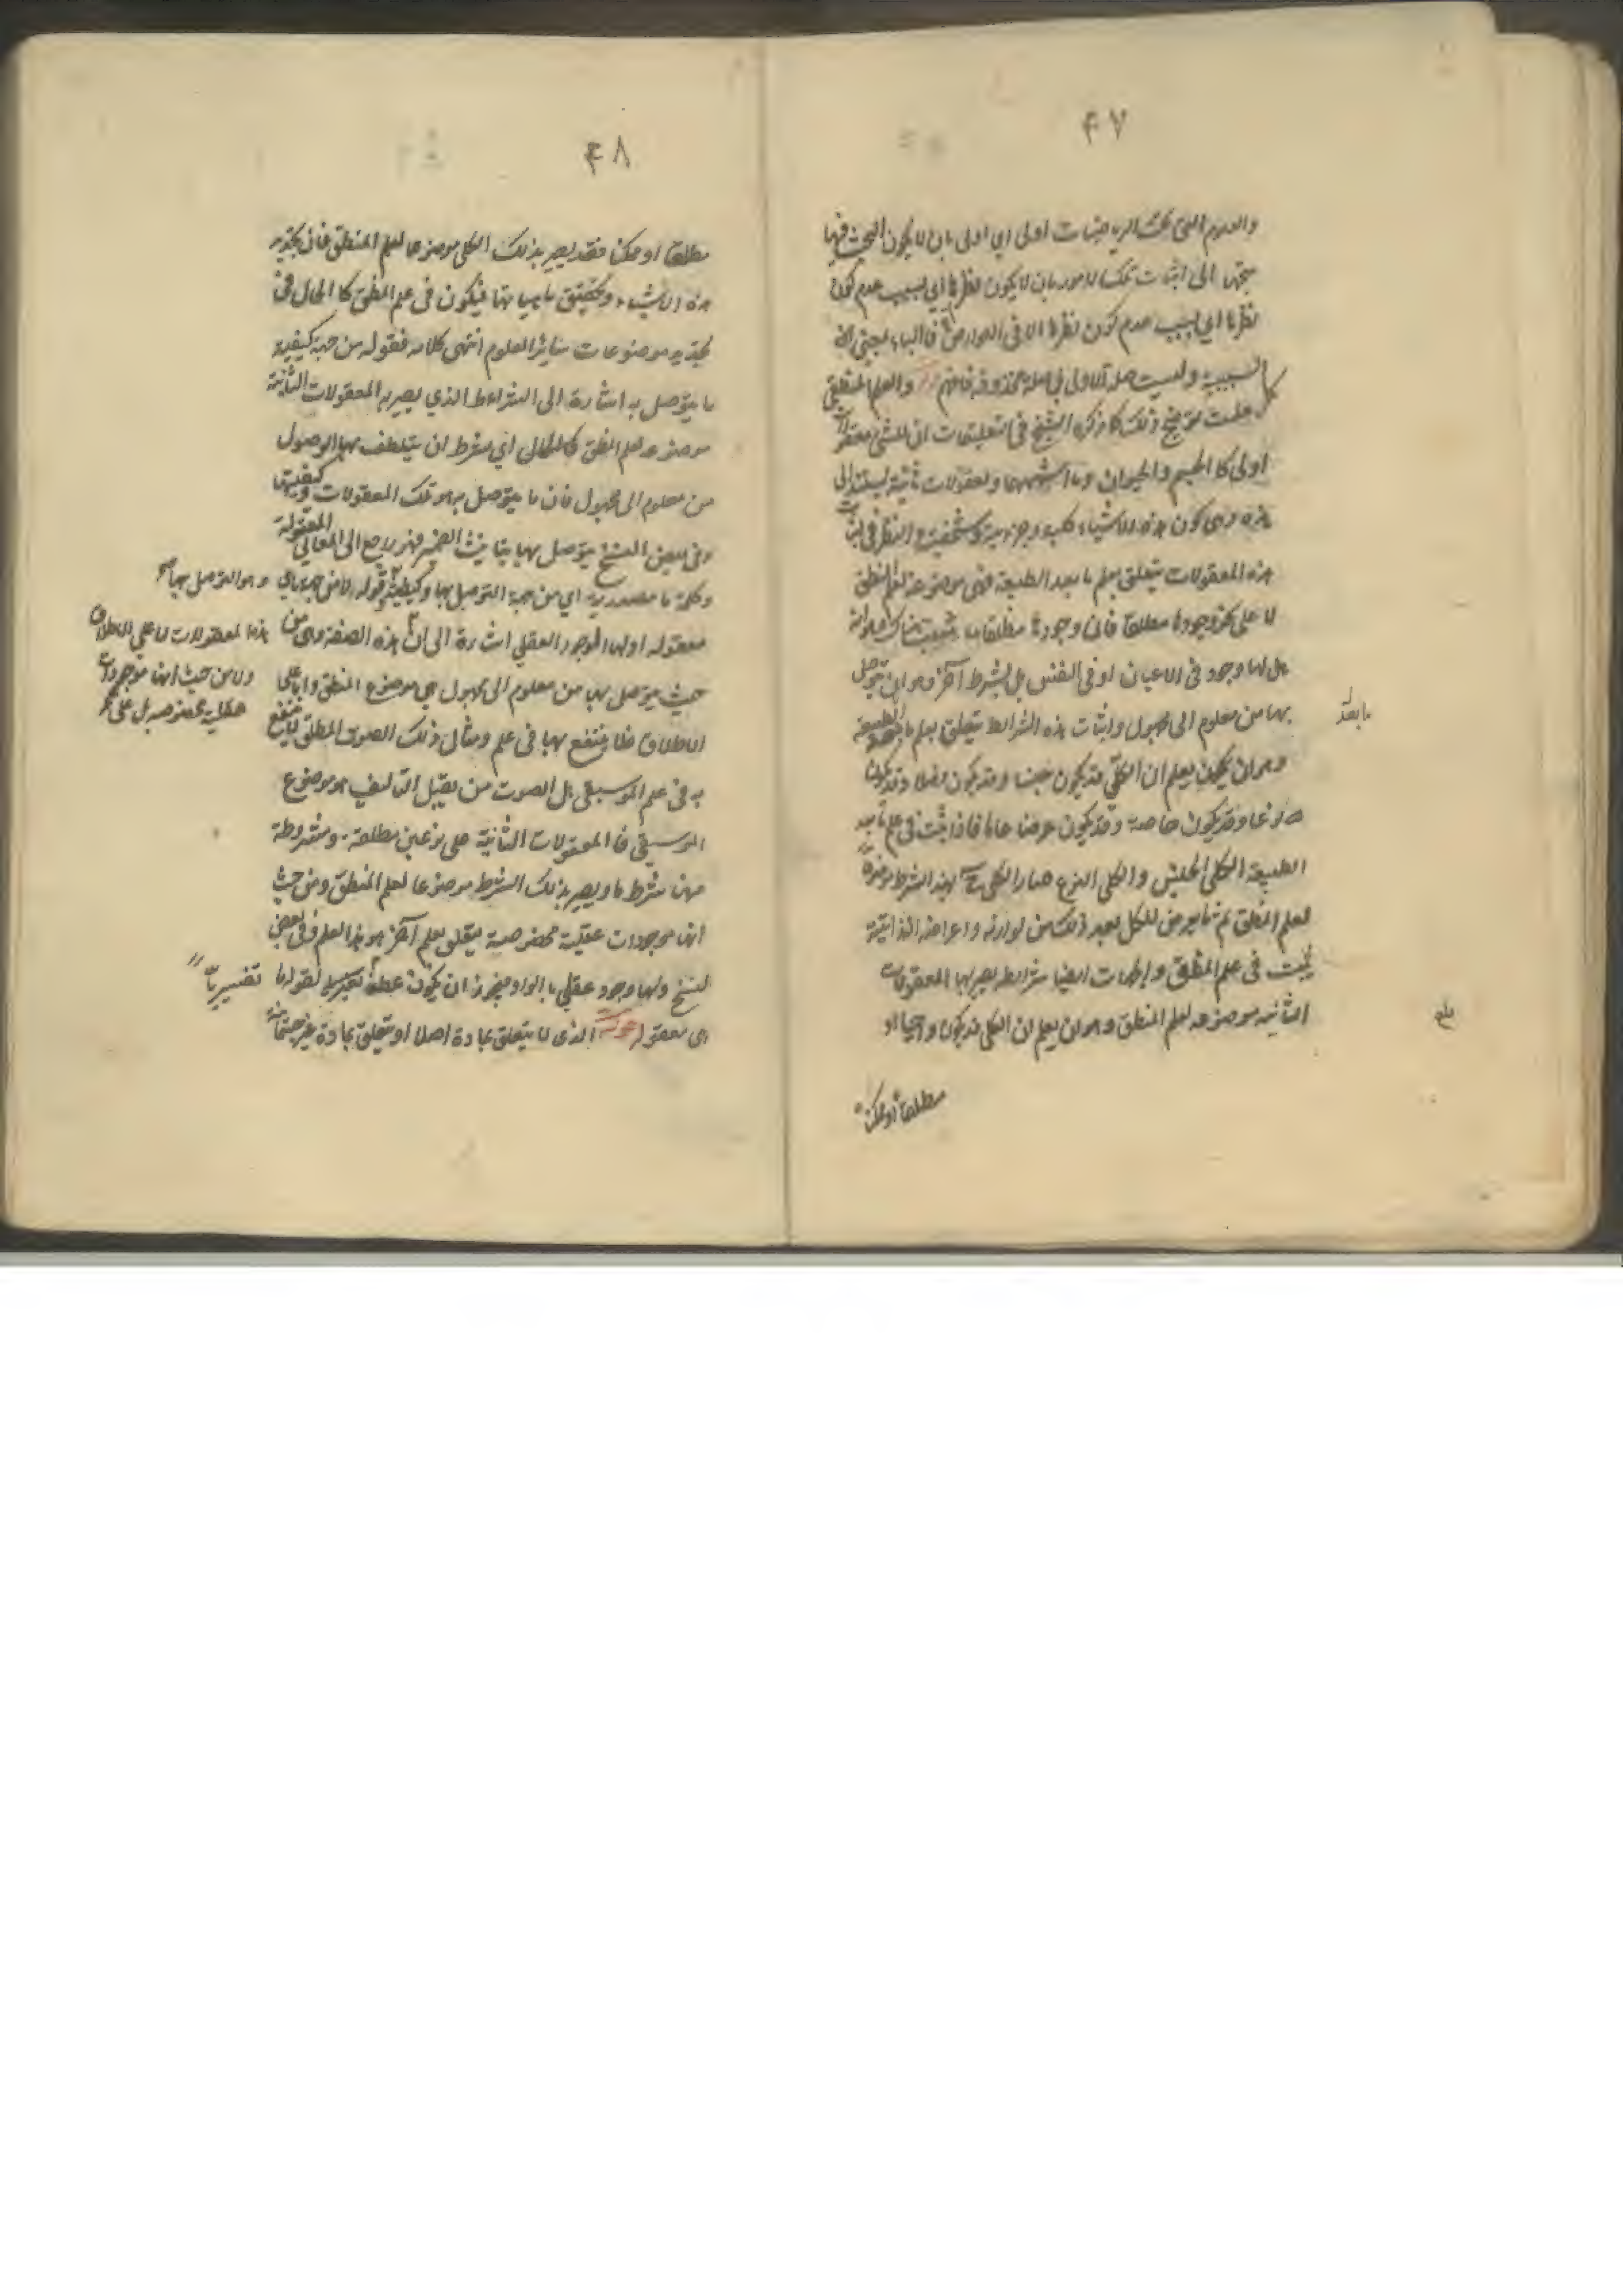 ۴۷
والعلوم التي تحت الرياضيات اولى اي اولى بان لا يكون البحث فيها
متجها الى اثبات تلك الامور بان لا يكون نظرها اي بسبب عدم كون
نظرها اي بسبب عدم كون نظرها الا في العوارض فالباء بمعنى
السببية وليست صلة الاولى فان صلته محذوفة فافهم والعلم المنطقي
كما علمت توضيح ذلك كما ذكره الشيخ في التعليقات ان للشيء معقولات
اولى كالجسم والحيوان وما اشبههما ومعقولات ثانية تستند الى
هذه وهي كون هذه الاشياء كلية وجزئية وشخصية والنظر في اثبات
هذه المعقولات يتعلق بعلم ما بعد الطبيعة فهي موضوعة لعلم المنطق
لا على نحو وجودها مطلقا فان وجودها مطلقا يثبت هناك وهو انه
هل لها وجود في الاعيان او في النفس بل بشرط آخر وهو ان يتوصل
بها من معلوم الى مجهول واثبات هذه الشرائط يتعلق بعلم ما بعد الطبيعة
ما بعد
وهو ان يعلم ان الكلي قد يكون جنسا وقد يكون فصلا وقد يكون
نوعا وقد يكون خاصة وقد يكون عرضا عاما فاذا اثبت في علم ما بعد
الطبيعة الكلي الجنسي والكلي النوعي صار الكلي ح بهذا الشرط موضوعا
لعلم المنطق ثم ما يعرض للكلي بعد ذلك من لوازمه واعراضه الذاتية
يثبت في علم المنطق والجهات ايضا شرائط يصير بها المعقولات
الثانية موضوعة لعلم المنطق وهو ان يعلم ان الكلي قد يكون واجبا او
مطلقا او ممكنا
۴۸
مطلقا او ممكنا فقد يصير بذلك الكلي موضوعا لعلم المنطق فان تحديد
هذه الاشياء وتحقيق ماهياتها فيكون في علم المنطق كالحال في
تحديد موضوعات سائر العلوم انتهى كلامه فقوله من جهة كيفية
ما يتوصل به اشارة الى الشرائط الذي يصير بها المعقولات الثانية
موضوعة لعلم المنطق كالحال اي بشرط ان يتلطف بها الوصول
من معلوم الى مجهول فان ما يتوصل به هو تلك المعقولات وكيفيتها
وفي بعض النسخ يتوصل بها بتانيث الضمير فهو راجع الى المعاني المعقولة
وكلمة ما مصدرية اي من جهة التوصل بها وكيفيته قوله لا من جهة ما هي
وهو التوصل بها صح
معقولة ولها الوجود العقلي اشارة الى ان هذه الصفة وهي من
هذه المعقولات لا على الاطلاق
ولا من حيث انها موجودات
عقلية مخصوصة بل على
حيث يتوصل بها من معلوم الى مجهول هي موضوع المنطق واما على
الاطلاق فلا ينتفع بها في علم ومثال ذلك الصوت المطلق لا ينتفع
به في علم الموسيقى بل الصوت من يقبل التاليف هو موضوع
الموسيقى فالمعقولات الثانية على نوعين مطلقة ومشروطة
فيها شرط ما ويصير بذلك الشرط موضوعا لعلم المنطق ومن حيث
انها موجودات عقلية مخصوصة يتعلق بعلم آخر هو هذا العلم وفي بعض
النسخ ولها وجود عقلي بالواو فيجوز ان يكون عطفا تفسيريا لقوله ما
تفسيريا
هي معقولة قوله الذي لا يتعلق بمادة اصلا او يتعلق بمادة غير جسمانية